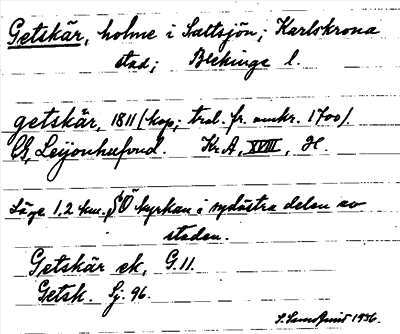 Getskär, holme i Saltsjön; Karlskrona
stad; Blekinge l.
getskär, 1811 (kop; trol. fr. omkr. 1700).
Leijonhufvud. KrA, XVIII, H.
Läge 1,2 km. SO kyrkan i sydöstra delen av
staden.
Getskär ek, G.11.
Getsk. Sj. 96.
1936.